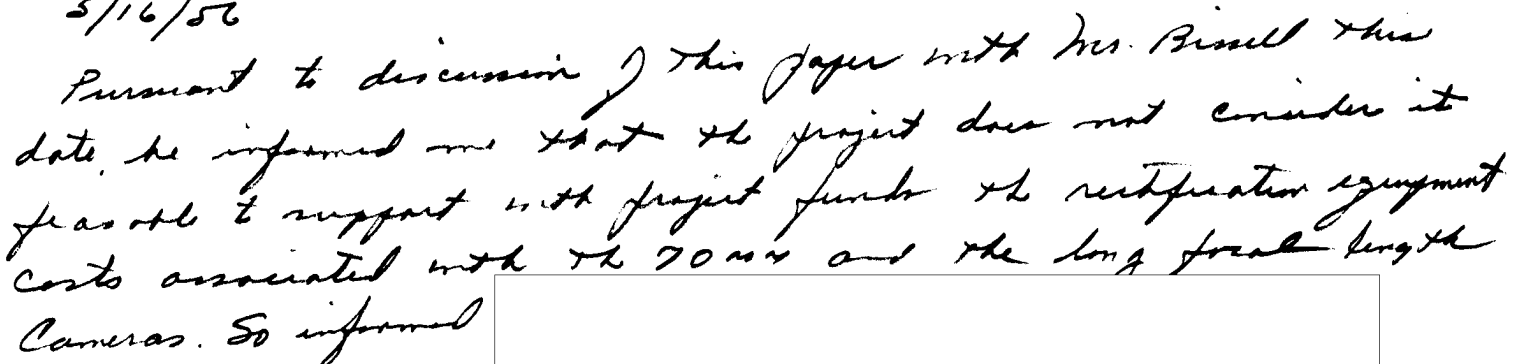 5/16/56
Pursuant to discussion of this paper with Mr. Bissell this
date, he informed me that the project does not consider it
feasable to support with project funds the rectification equipment
costs associated with the 70 mm and the long focal length
Cameras. So informed